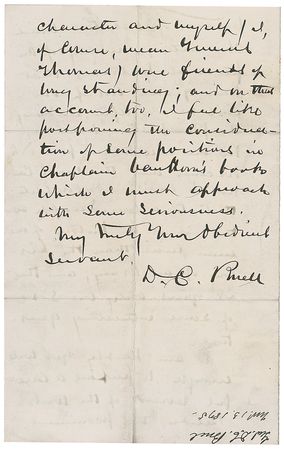 character and myself (I,
of course, mean General
Thomas) were friends of
long standing; and on that
account, too, I feel like
postponing the considera-
tion of some positions in
Chaplain Van Horn's book
which I must approach
with some seriousness.
Very truly Your Obedient
Servant.
D. C. Buell
Genl. D. C. Buel
Nov. 13. 1875.